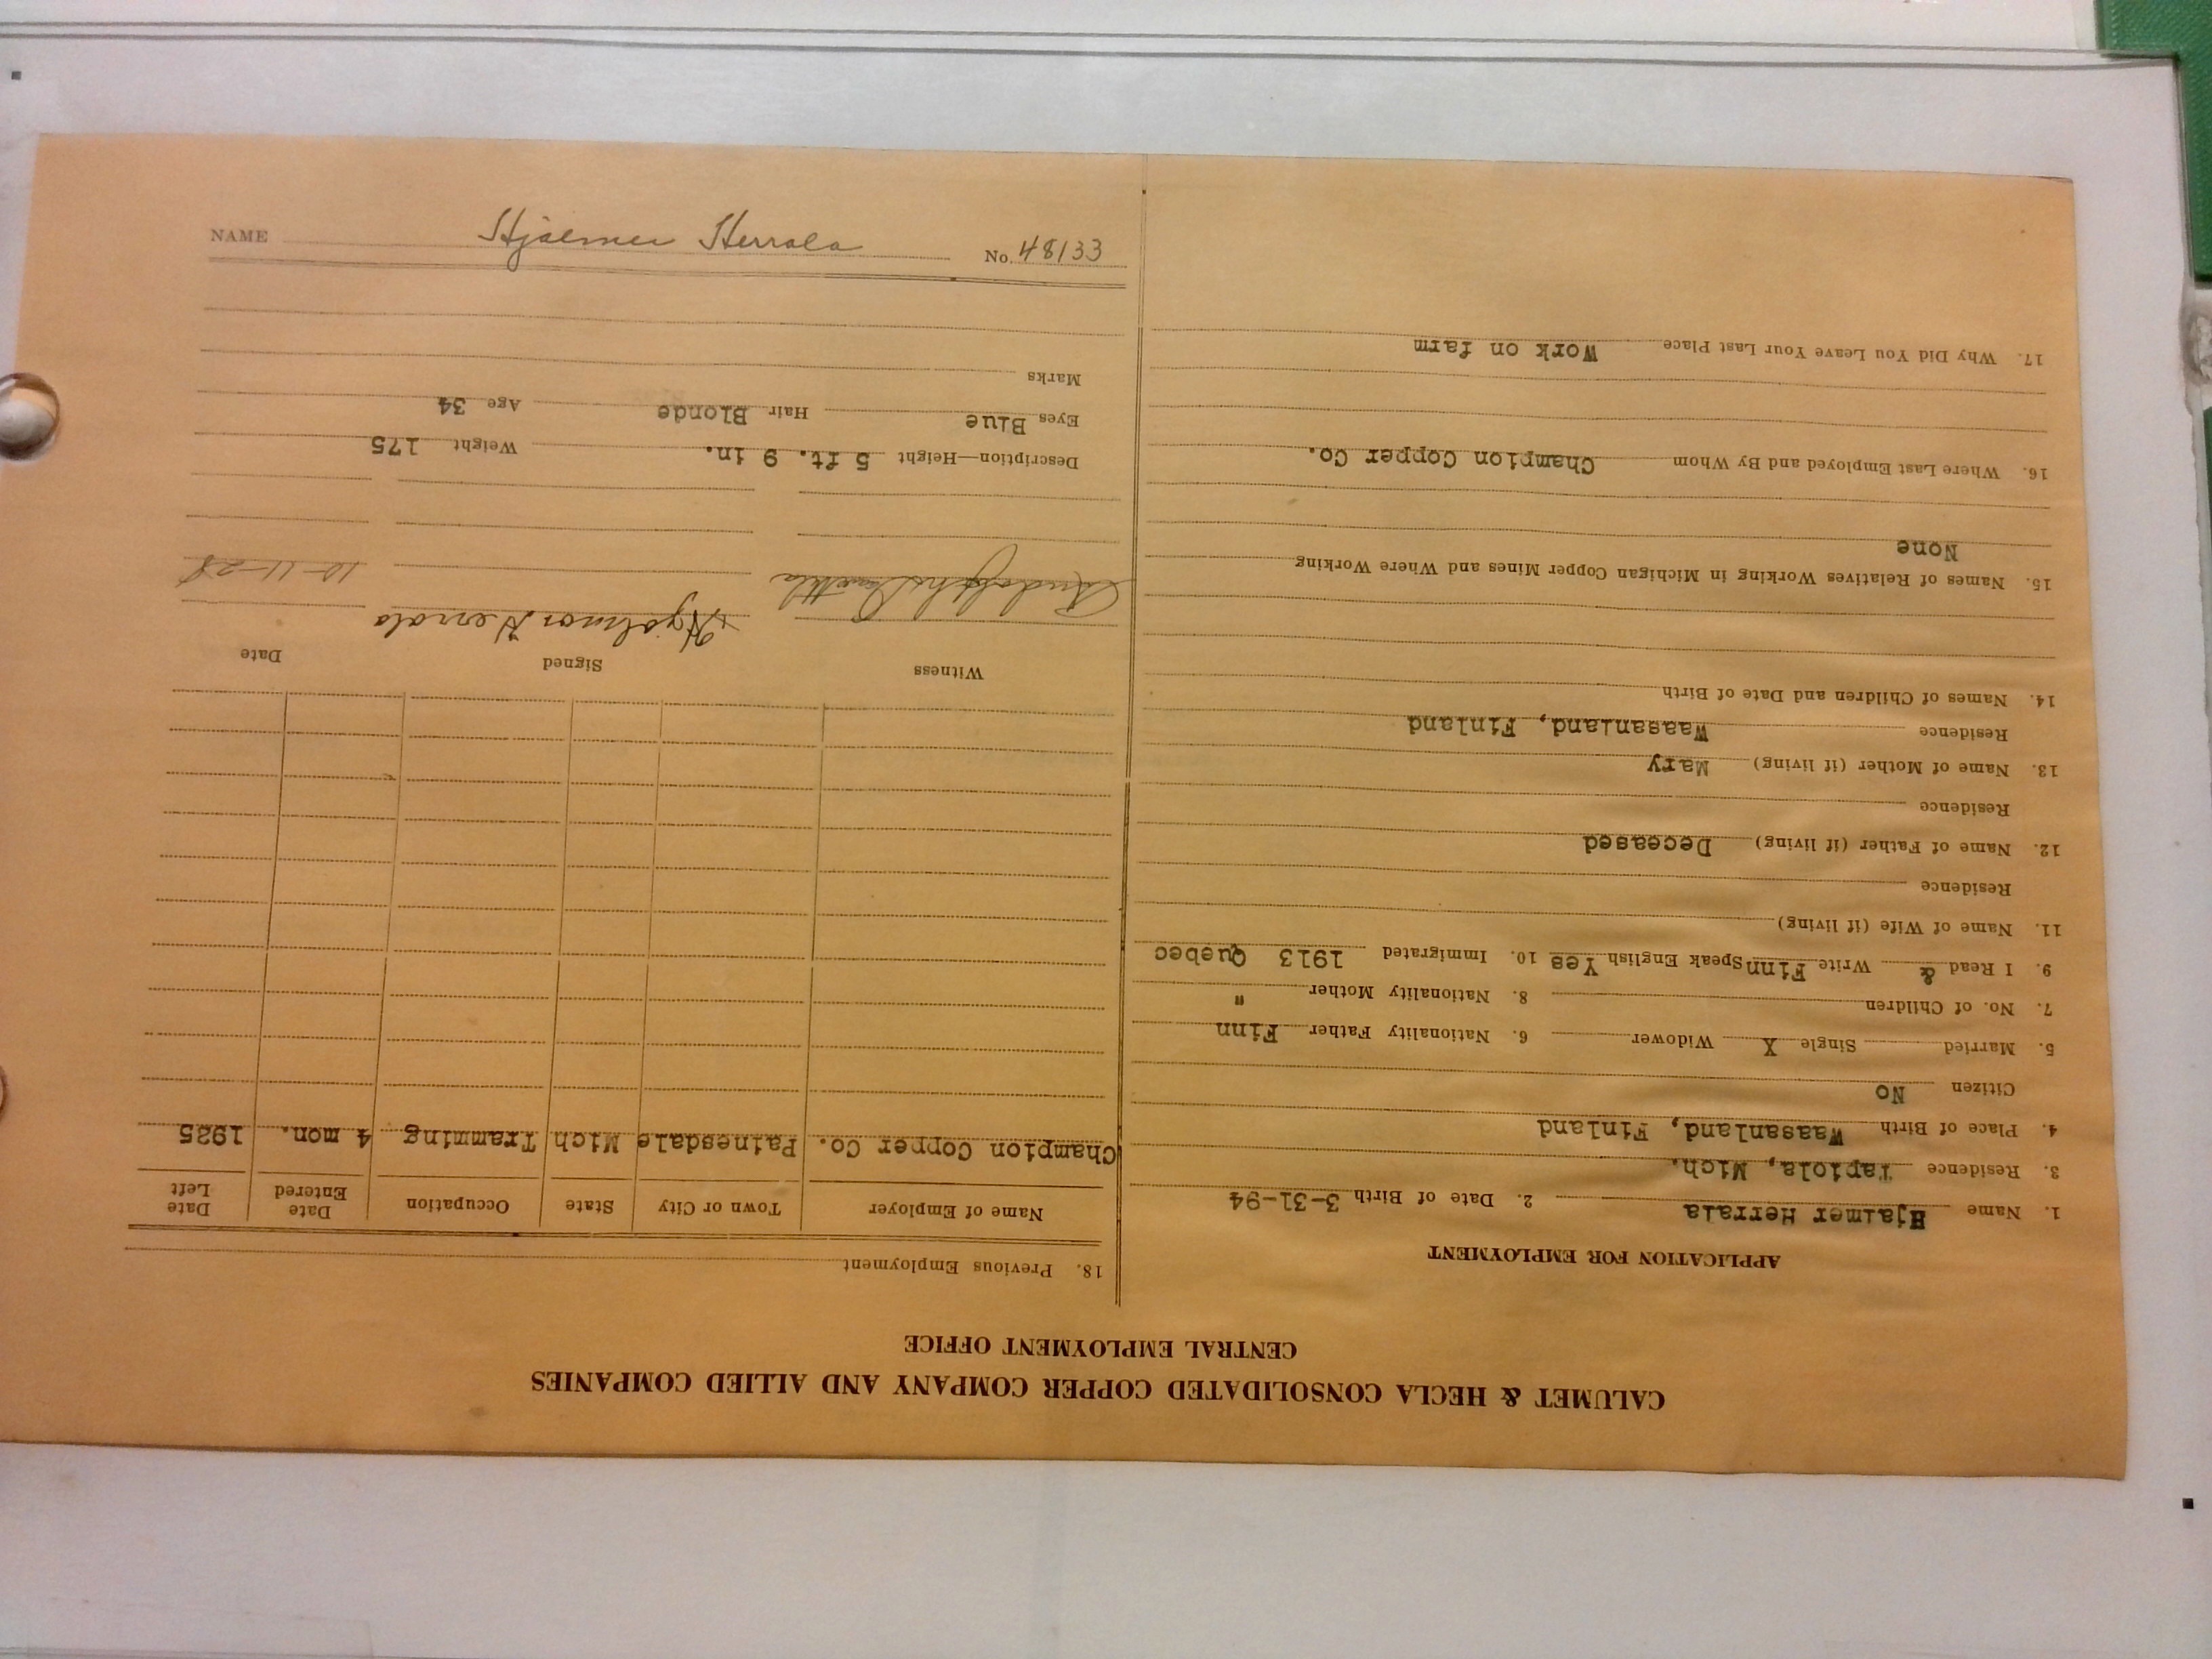 CALUMET & HECLA CONSOLIDATED COPPER COMPANY AND ALLIED COMPANIES
CENTRAL EMPLOYMENT OFFICE
APPLICATION FOR EMPLOYMENT
1. Name Hjalmer Herrala 2. Date of Birth 3-31-94
3. Residence Tapiola, Mich.
4. Place of Birth Waasanland, Finland
Citizen No
5. Married Single X Widower 6. Nationality Father Finn
7. No. of Children 8. Nationality Mother "
9. I Read & Write Finn Speak English Yes 10. Immigrated 1913 Quebec
11. Name of Wife (if living)
Residence
12. Name of Father (if living) Deceased
Residence
13. Name of Mother (if living) Mary
Residence Waasanland, Finland
14. Names of Children and Date of Birth
15. Names of Relatives Working in Michigan Copper Mines and Where Working
None
16. Where Last Employed and By Whom Champion Copper Co.
17. Why Did You Leave Your Last Place Work on farm
18. Previous Employment
Name of Employer Town or City State Occupation Date Entered Date Left
Champion Copper Co. Painesdale Mich Tramming 4 mon. 1925
Witness Signed Date
Hjalmar Herrala 10-11-28
Description—Height 5 ft. 9 in. Weight 175
Eyes Blue Hair Blonde Age 34
Marks
NAME Hjalmer Herrala No. 48133